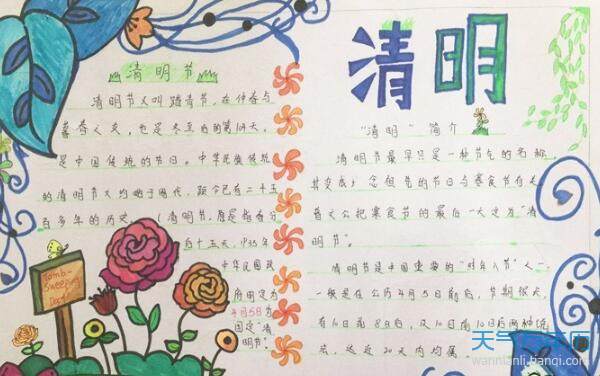 清明节
清明节又叫踏青节,在仲春与
暮春之交,也是冬至后的第104天,
是中国传统的节日。中华民族传统
的清明节大约始于周代,距今已有二千五
百多年的历史。(清明节,原是指春分
后十五天,1935年
中华民国政
府明定为
4月5日为
国定"清
明节"。
Tomb-
Sweeping
Day
清明
"清明"简介
清明节最早只是一种节气的名称,
其变成纪念祖先的节日与寒食节有关。
晋文公把寒食节的最后一天定为"清
明节"。
清明节是中国重要的"时年八节"之一,
一般是在公历4月5日前后,节期很长,
有10日前8日后,及10日前10日后两种说
法,这近20天内均属
wannianli.tianqi.com